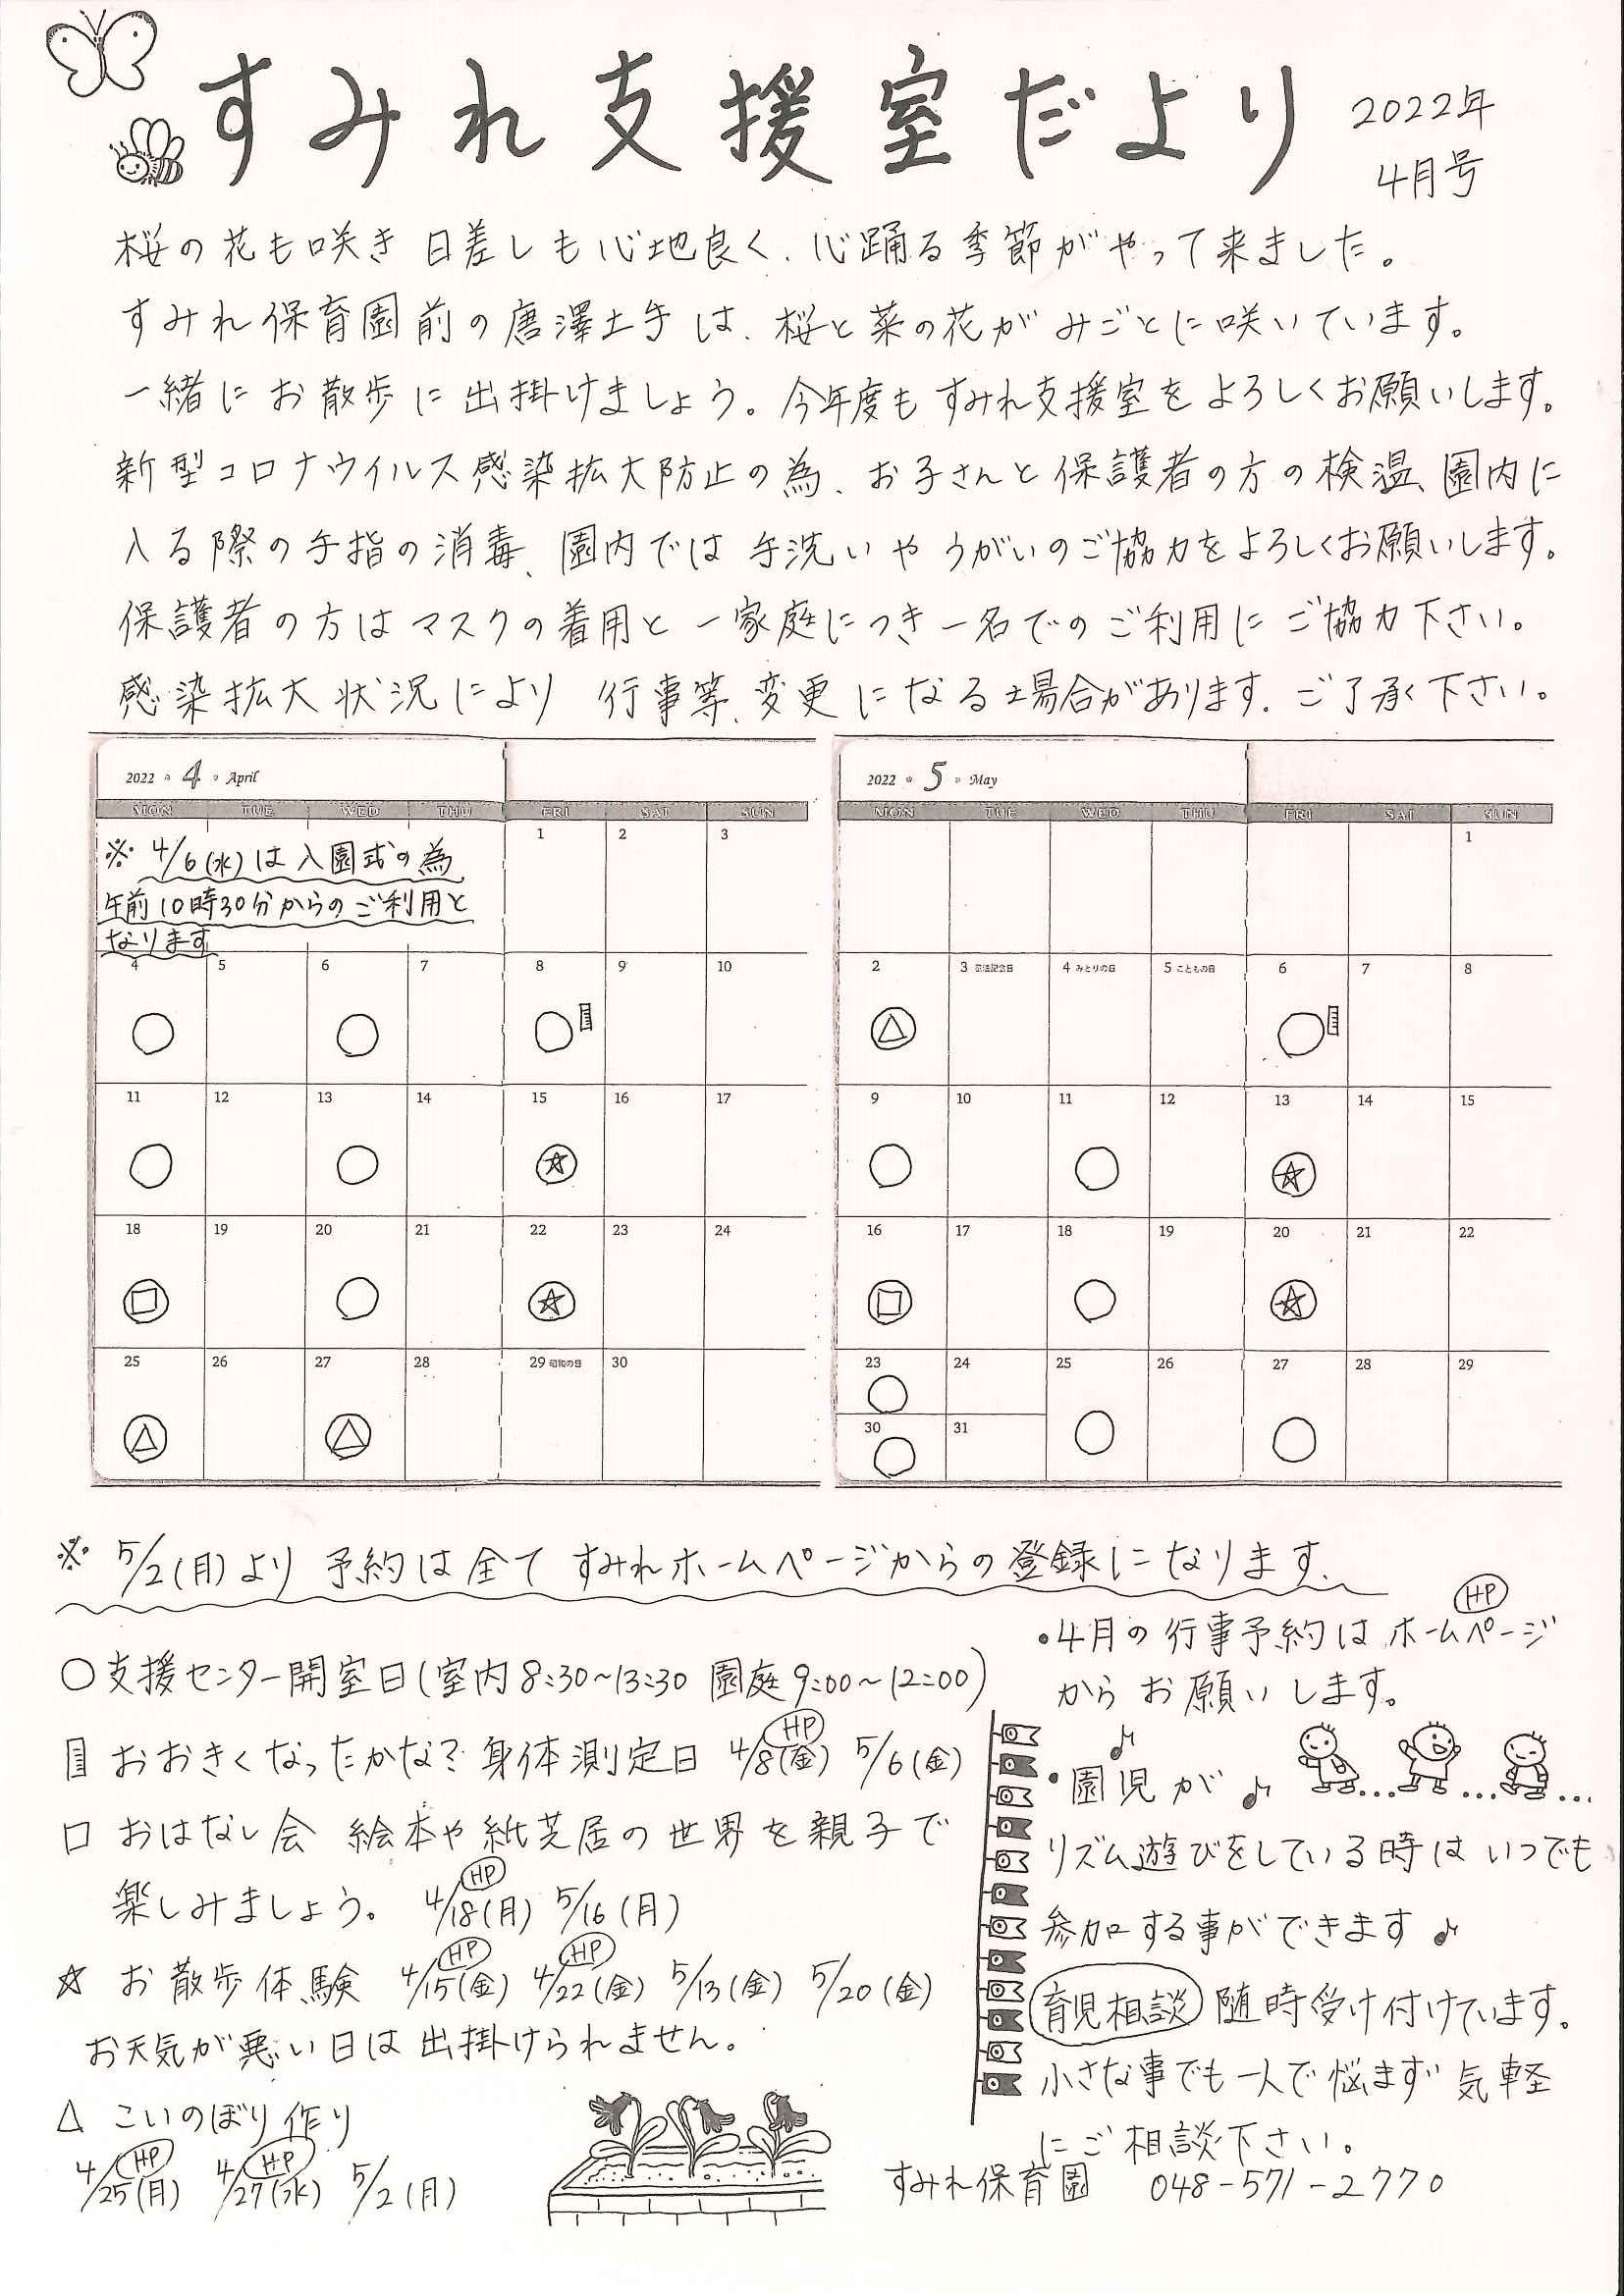 すみれ支援室だより
2022年
4月号
桜の花も咲き 日差しも心地良く、心踊る季節がやって来ました。
すみれ保育園前の唐澤土手は、桜と菜の花がみごとに咲いています。
一緒にお散歩に出掛けましょう。今年度もすみれ支援室をよろしくお願いします。
新型コロナウイルス感染拡大防止の為、お子さんと保護者の方の検温、園内に
入る際の手指の消毒、園内では手洗いやうがいのご協力をよろしくお願いします。
保護者の方はマスクの着用と一家庭につき一名でのご利用にご協力下さい。
感染拡大状況により 行事等、変更になる場合があります。ご了承く下さい。
2022 4 April
MON TUE WED THU FRI SAT SUN
※4/6(水)は入園式の為
午前10時30分からのご利用と
なります
1 2 3
4 5 6 7 8 9 10
11 12 13 14 15 16 17
18 19 20 21 22 23 24
25 26 27 28 29 昭和の日 30
2022 5 May
MON TUE WED THU FRI SAT SUN
1
2 3 憲法記念日 4 みどりの日 5 こどもの日 6 7 8
9 10 11 12 13 14 15
16 17 18 19 20 21 22
23 24 25 26 27 28 29
30 31
※ 5/2(月)より 予約は全て すみれホームページからの登録になります。
○支援センター開室日(室内8:30~13:30 園庭9:00~12:00)
おおきくなったかな?身体測定日 4/8(金) HP 5/6(金)
□ おはなし会 絵本や紙芝居の世界を親子で
楽しみましょう。 4/18(月) HP 5/16(月)
☆ お散歩体験 4/15(金) HP 4/22(金) HP 5/13(金) 5/20(金)
お天気が悪い日は出掛けられません。
△ こいのぼり作り
4/25(月) HP 4/27(水) HP 5/2(月)
HP
・4月の行事予約はホームページ
からお願いします。
・園児が♪
リズム遊びをしている時はいつでも
参加する事ができます♪
育児相談 随時受け付けています。
小さな事でも一人で悩まず気軽
にご相談下さい。
すみれ保育園 048-571-2770